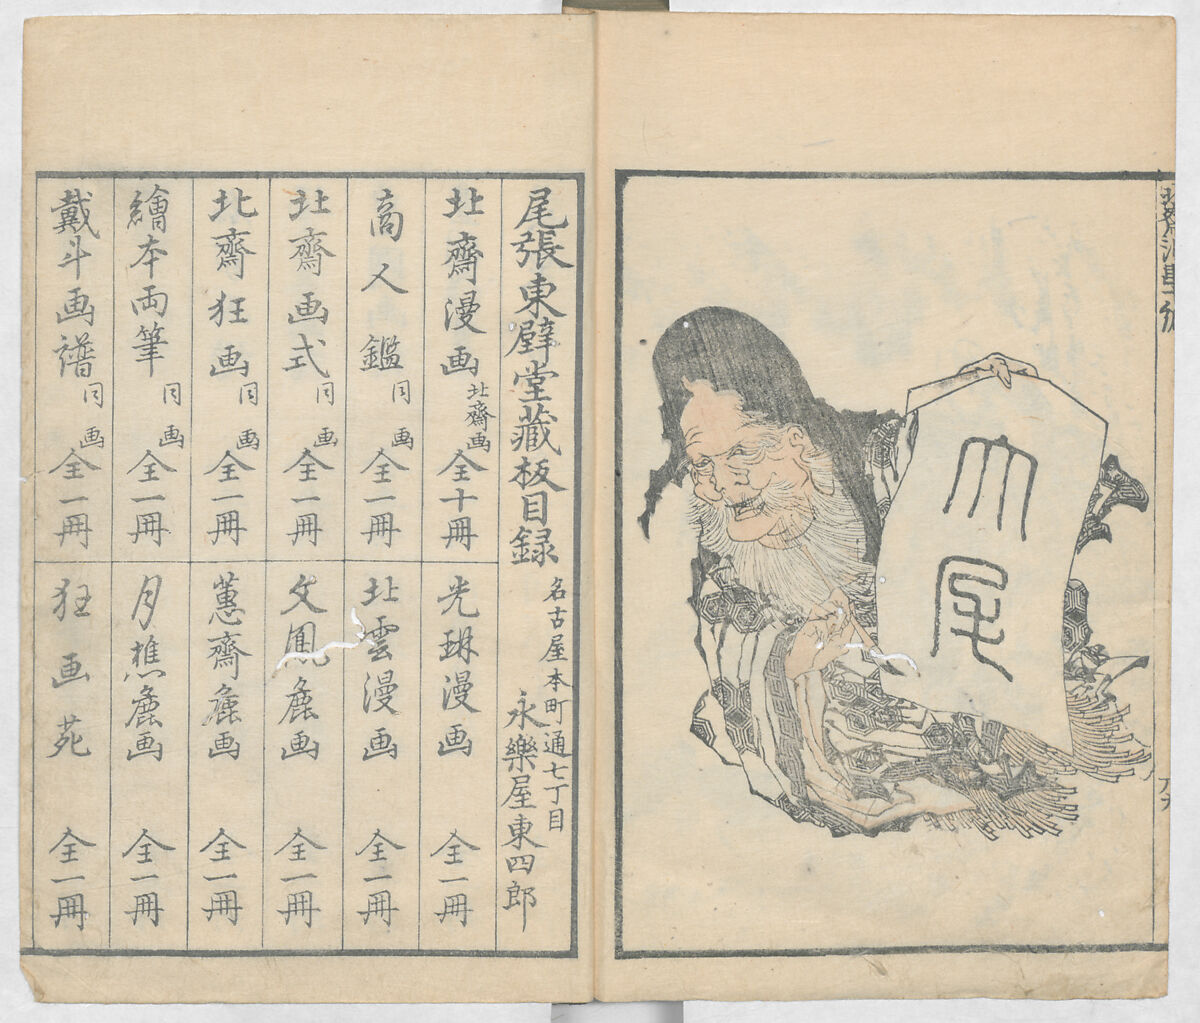 大尾
尾張東壁堂藏板目録
名古屋本町通七丁目
永樂屋東四郎
北齋漫画 北齋画 全十冊
光琳漫画 全一冊
商人鑑 同画 全一冊
北雲漫画 全一冊
北齋画式 同画 全一冊
文鳳麁画 全一冊
北齋狂画 同画 全一冊
蕙齋麁画 全一冊
繪本両筆 同画 全一冊
月樵麁画 全一冊
戴斗画譜 同画 全一冊
狂画苑 全一冊